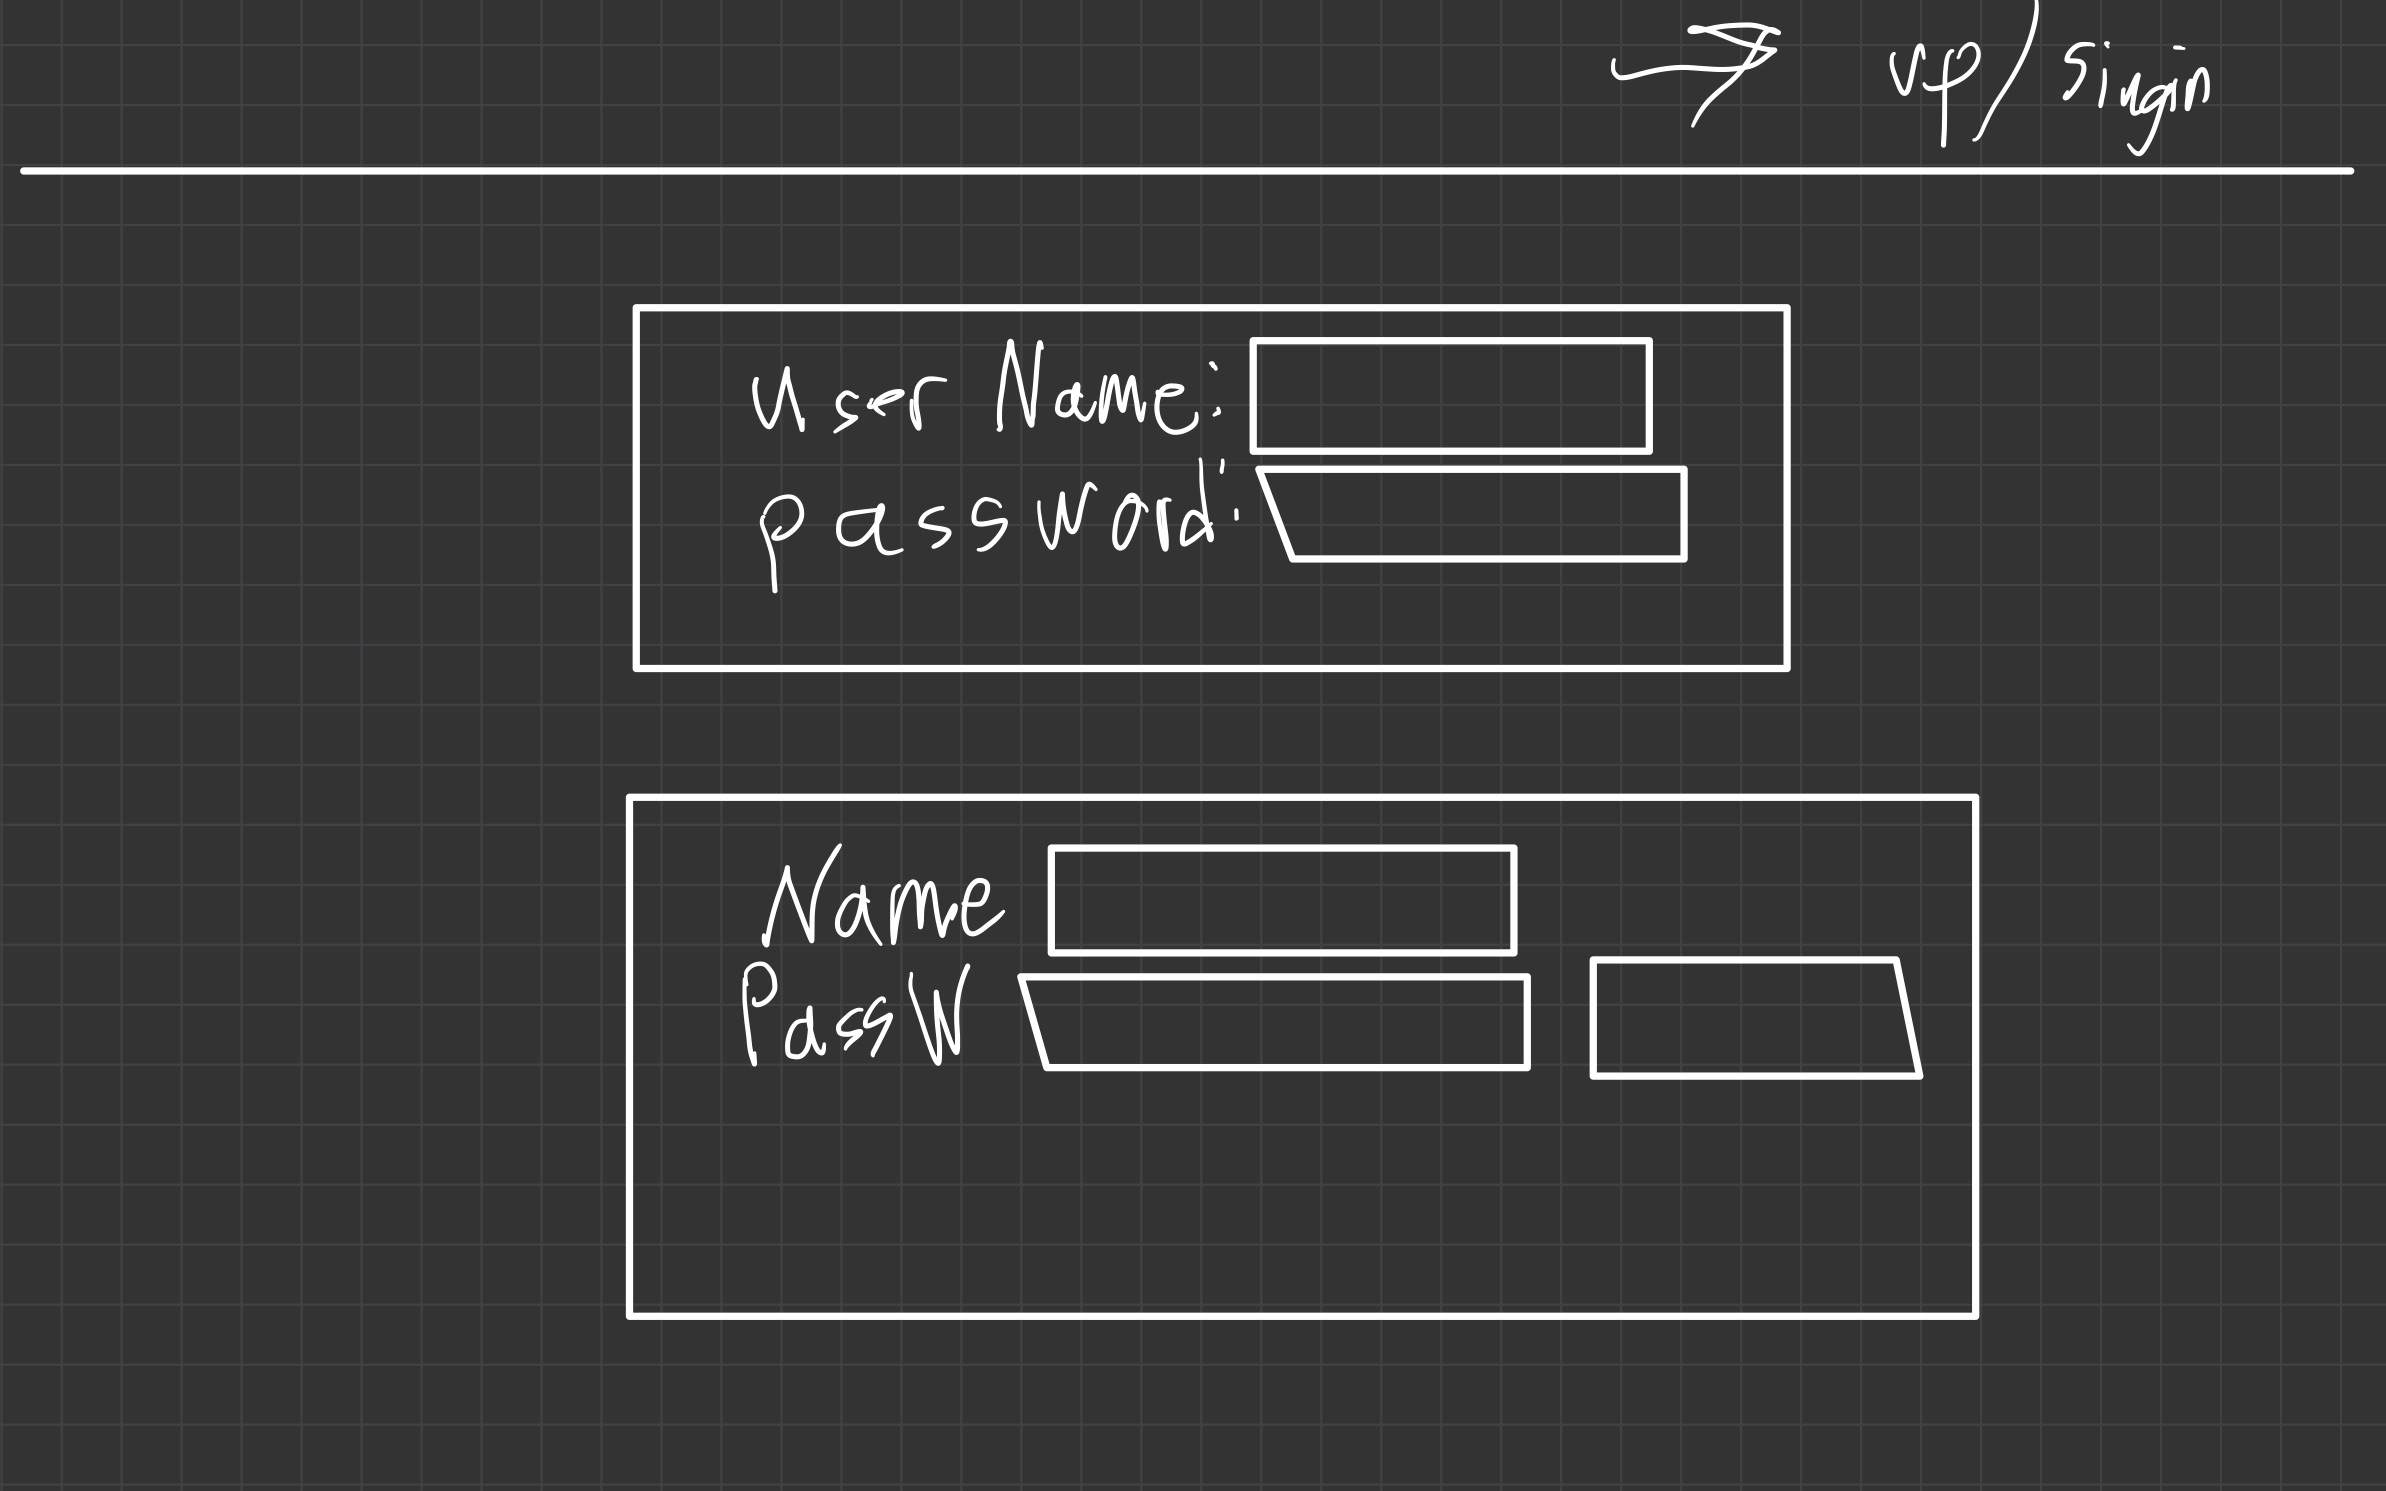 up/ singin
User Name:
password:
Name
PassW